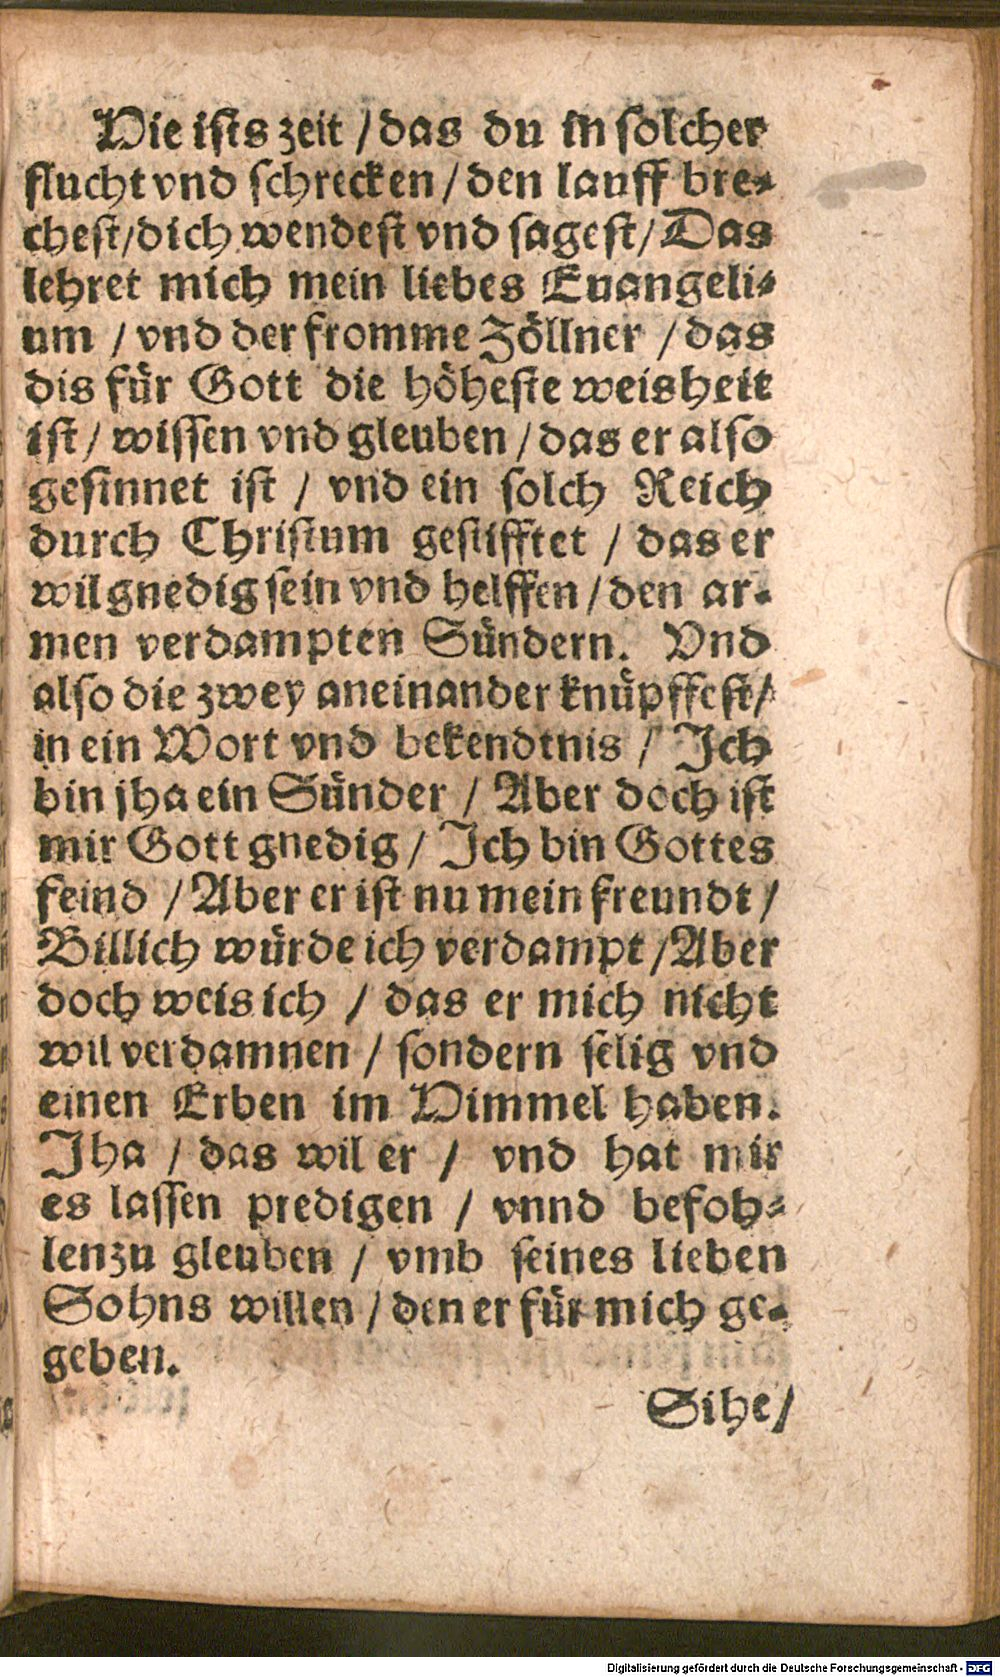 Hie ists zeit / das du in solcher
flucht vnd schrecken / den lauff bre-
chest / dich wendest vnd sagest / Das
lehret mich mein liebes Euangeli-
um / vnd der fromme Zöllner / das
dis für Gott die höheste weisheit
ist / wissen vnd gleuben / das er also
gesinnet ist / vnd ein solch Reich
durch Christum gestifftet / das er
wil gnedig sein vnd helffen / den ar-
men verdampten Sündern. Vnd
also die zwey aneinander knüpffest /
in ein Wort vnd bekendtnis / Ich
bin jha ein Sünder / Aber doch ist
mir Gott gnedig / Ich bin Gottes
feind / Aber er ist nu mein freundt /
Billich würde ich verdampt / Aber
doch weis ich / das er mich nicht
wil verdamnen / sondern selig vnd
einen Erben im Himmel haben.
Jha / das wil er / vnd hat mir
es lassen predigen / vnnd befoh-
lenzu gleuben / vmb seines lieben
Sohns willen / den er für mich ge-
geben.
Sihe /
Digitalisierung gefördert durch die Deutsche Forschungsgemeinschaft - DFG